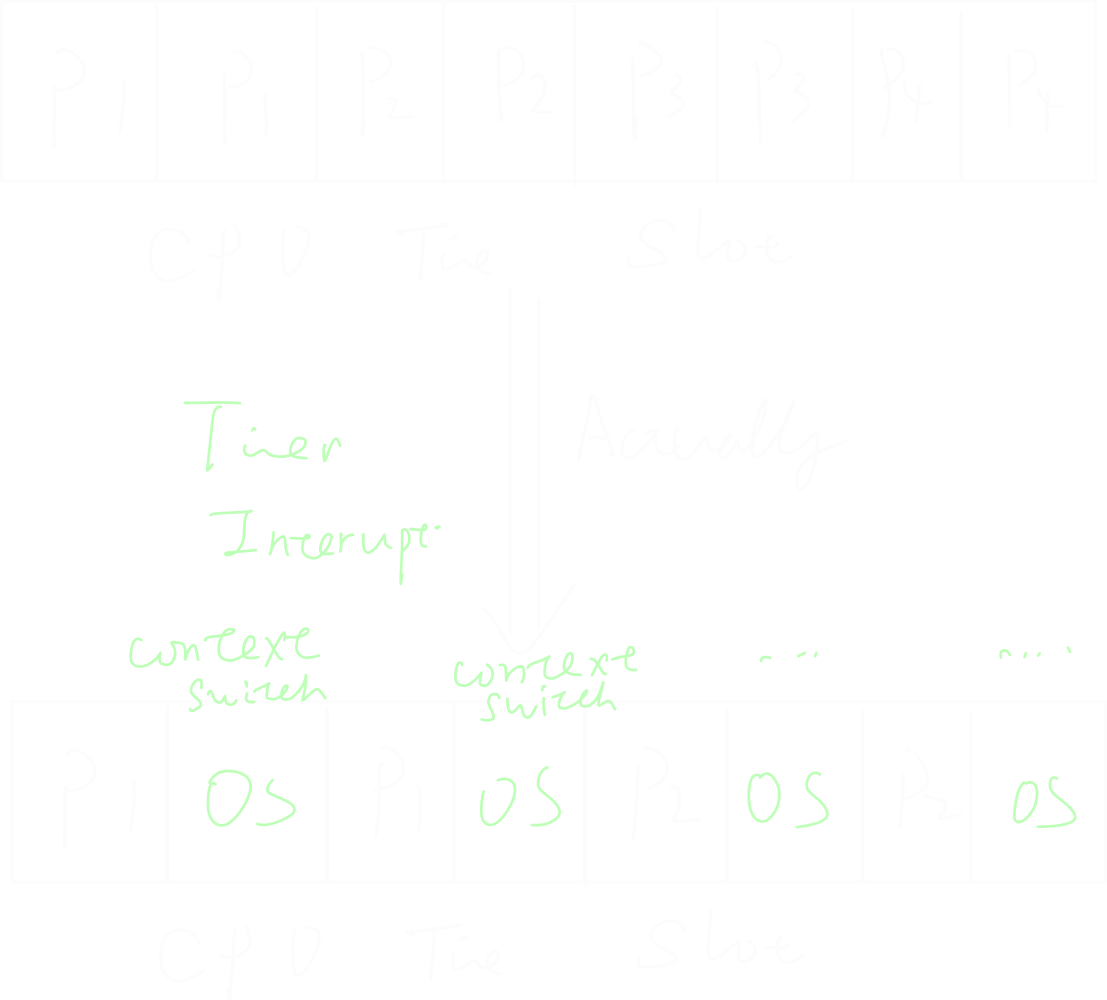 P1 P1 P2 P2 P3 P3 P4 P4
CPU Time Slot
Actually
Timer
Interrupt
context switch context switch .... ....
P1 OS P1 OS P2 OS P2 OS
CPU Time Slot